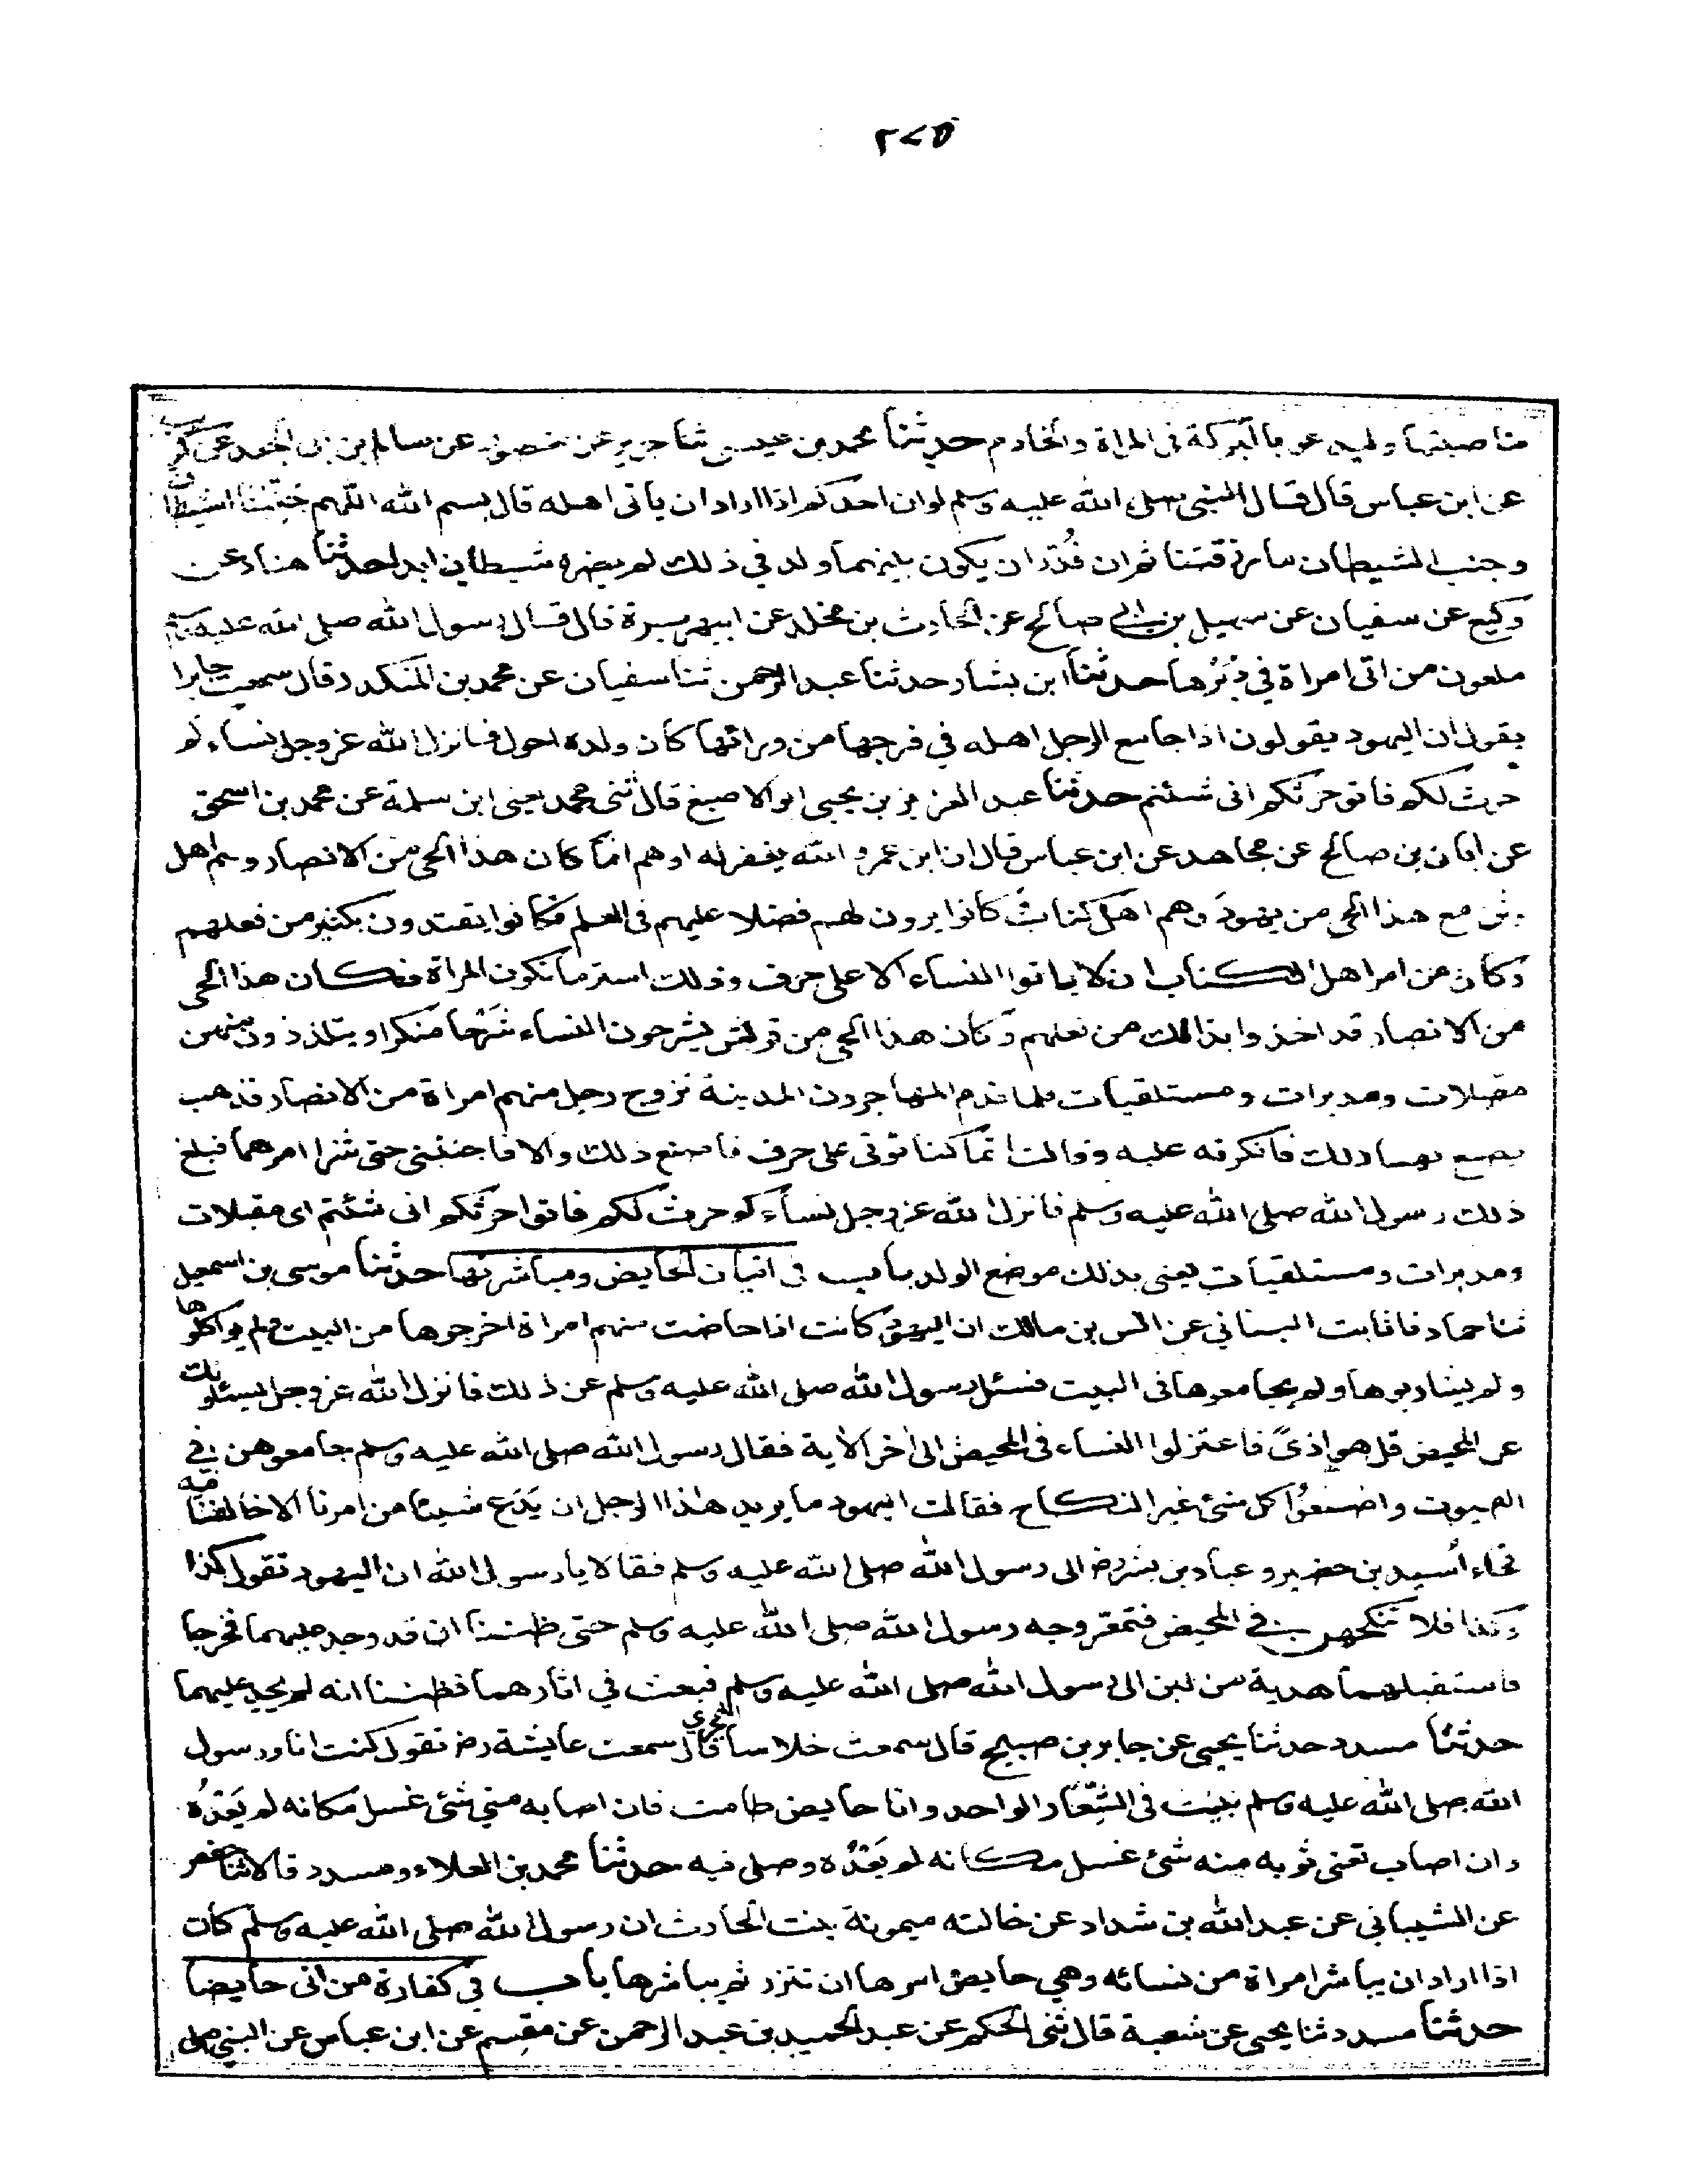 ٢٧٥
بناصيتها وليدعو بالبركة في المراة والخادم حدثنا محمد بن عيسى ثنا جرير عن منصور عن سالم بن ابى الجعد عن كريب
عن ابن عباس قال قال النبى صلى الله عليه وسلم لو ان احدكم اذا اراد ان ياتى اهله قال بسم الله اللهم جنبنا الشيطان
وجنب الشيطان ما رزقتنا ثم ان قُدّر ان يكون بينهما ولد في ذلك لم يضره شيطان ابدا حدثنا هناد عن
وكيع عن سفيان عن سهيل بن ابي صالح عن الحارث بن مخلد عن ابى هريرة قال قال رسول الله صلى الله عليه وسلم
ملعون من اتى امراة في دبرها حدثنا ابن بشار حدثنا عبد الرحمن ثنا سفيان عن محمد بن المنكدر قال سمعت جابرا
يقول ان اليهود يقولون اذا جامع الرجل اهله في فرجها من ورائها كان ولده احول فانزل الله عز وجل نساءكم
حرث لكم فاتو حرثكم انى شئتم حدثنا عبد العزيز بن يحيى ابو الاصبغ قال ثنى محمد يعنى ابن سلمة عن محمد بن اسحق
عن ابان بن صالح عن مجاهد عن ابن عباس قال ان ابن عمر و الله يغفر له اوهم انما كان هذا الحى من الانصار وهم اهل
وثن مع هذا الحى من يهود وهم اهل كتاب كانوا يرون لهم فضلا عليهم فى العلم فكانوا يقتدون بكثير من فعلهم
وكان من امر اهل الكتاب ان لا ياتوا النساء الا على حرف وذلك استر ما تكون المراة فكان هذا الحى
من الانصار قد اخذوا بذالك من فعلهم وكان هذا الحى من قريش يشرحون النساء شرحا منكرا ويتلذذون منهن
مقبلات ومدبرات ومستلقيات فلما قدم المهاجرون المدينة تزوج رجل منهم امراة من الانصار فذهب
يصنع بها ذلك فانكرته عليه وقالت انما كنا نوتى على حرف فاصنع ذلك والا فاجتنبنى حتى شرا امرهما فبلغ
ذلك رسول الله صلى الله عليه وسلم فانزل الله عز وجل نساءكم حرث لكم فاتوا حرثكم انى شئتم اى مقبلات
ومدبرات ومستلقيات يعنى بذلك موضع الولد باب فى اتيان الحايض ومباشرتها حدثنا موسى بن اسمعيل
ثنا حماد قا ثابت البنانى عن انس بن مالك ان اليهود كانت اذا حاضت منهم امراة اخرجوها من البيت ولم يواكلوها
ولم يشاربوها ولم يجامعوها فى البيت فسئل رسول الله صلى الله عليه وسلم عن ذلك فانزل الله عز وجل يسئلونك
عن المحيض قل هو اذىً فاعتزلوا النساء فى المحيض الى اخر الاية فقال رسول الله صلى الله عليه وسلم جامعوهن في
البيوت واصنعوا كل شئ غير النكاح فقالت اليهود ما يريد هذا الرجل ان يَدَع شيئا من امرنا الا خالفنا فيه
فجاء اُسيد بن حضير و عباد بن بشر رض الى رسول الله صلى الله عليه وسلم فقالا يا رسول الله ان اليهود تقول كذا
وكذا فلا ننكحهن في المحيض فتمعر وجه رسول الله صلى الله عليه وسلم حتى ظننا ان قد وجد عليهما فخرجا
فاستقبلهما هدية من لبن الى رسول الله صلى الله عليه وسلم فبعث في اثارهما فظننا انه لم يجد عليهما
حدثنا مسدد حدثنا يحيى عن جابر بن صبيح قال سمعت خلاسا الهجري قال سمعت عايشة رض تقول كنت انا ورسول
الله صلى الله عليه وسلم نبيت فى الشِعَار الواحد وانا حايض طامت فان اصابه منى شئ غسل مكانه لم يَعْدُه
وان اصاب تعنى ثوبه منه شئ غسل مكانه لم يَعْدُه وصلى فيه حدثنا محمد بن العلاء ومسدد قالا ثنا حفص
عن الشيبانى عن عبد الله بن شداد عن خالته ميمونة بنت الحارث ان رسول الله صلى الله عليه وسلم كان
اذا اراد ان يباشر امراة من نسائه وهي حايض امرها ان تتزر ثم يباشرها باب في كفارة من اتى حايضا
حدثنا مسدد ثنا يحيى عن شعبة قال ثنى الحكم عن عبد الحميد بن عبد الرحمن عن مقسم عن ابن عباس عن النبي صلى